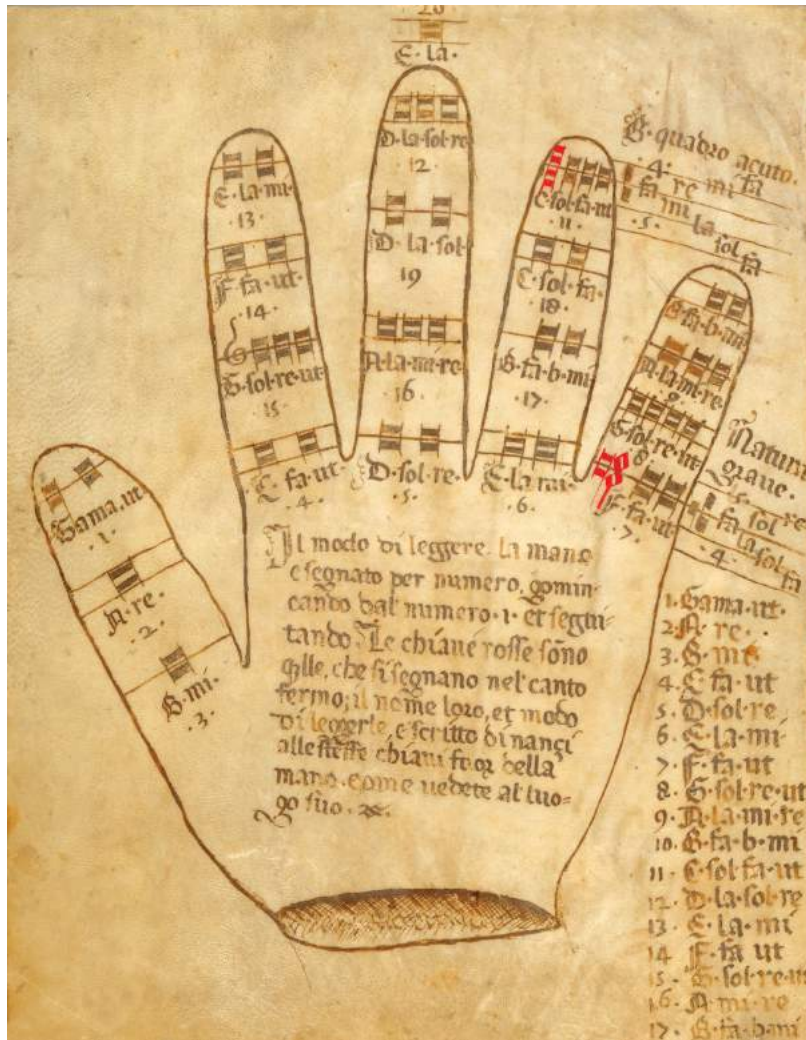 20
E·la·
D·la·sol·re
12
D·la·sol
19
A·la·mi·re
16
D·sol·re·
·5·
E·la·mi·
·13·
F·fa·ut·
·14·
G·sol·re·ut
15
C·fa·ut·
·4·
C·sol·fa·ut
11
C·sol·fa·
18
B·fa·b·mi
·17·
E·la·mi·
·6·
B·fa·b·mi
A·la·mi·re·
9
G·sol·re·ut
8
F·fa·ut·
·7·
Gama·ut·
·1·
A·re·
·2·
B·mi·
·3·
B·quadro acuto·
·4·
fa re mi fa
mi la sol fa
·5·
Natura
graue·
sol re
fa la sol fa
·4·
Il modo di leggere la mano
e segnato per numero, comin-
cando dal numero ·1· et segui-
tando Le chiaue rosse sono
qlle, che si segnano nel canto
fermo; il nome loro, et modo
di leggerle, e scritto dinanci
alle stesse chiaui fuor della
mano come uedete al luo-
go suo ·
1· Gama·ut·
2· A·re·
3· B·mi·
4· C·fa·ut
5· D·sol·re
6· E·la·mi
7· F·fa·ut
8· G·sol·re·ut
9· A·la·mi·re
10· B·fa·b·mi
11· C·sol·fa·ut
12· D·la·sol·re
13· E·la·mi
14 F·fa ut
15· G·sol·re·ut
16· A·mi·re
17· B·fa·b·mi